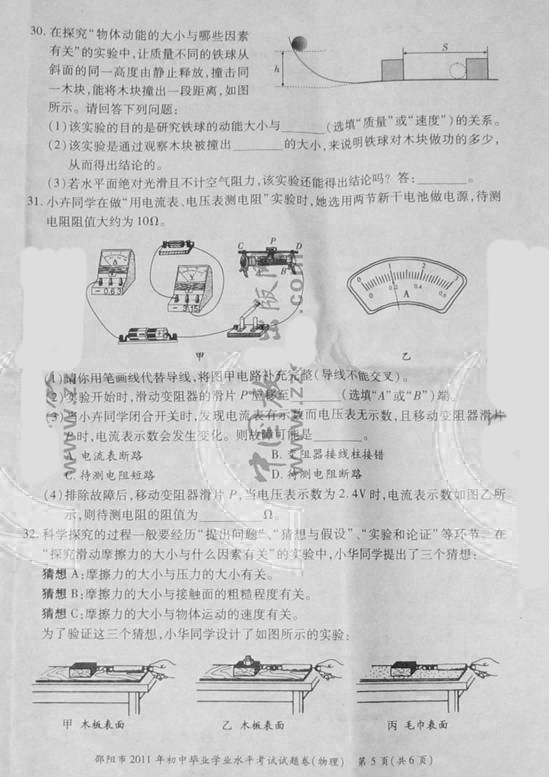 30. 在探究“物体动能的大小与哪些因素
有关”的实验中,让质量不同的铁球从
斜面的同一高度由静止释放,撞击同
一木块,能将木块撞出一段距离,如图
所示。请回答下列问题:
h
S
(1)该实验的目的是研究铁球的动能大小与______(选填“质量”或“速度”)的关系。
(2)该实验是通过观察木块被撞出______的大小,来说明铁球对木块做功的多少,
从而得出结论的。
(3)若水平面绝对光滑且不计空气阻力,该实验还能得出结论吗? 答:______。
31. 小卉同学在做“用电流表、电压表测电阻”实验时,她选用两节新干电池做电源,待测
电阻阻值大约为10Ω。
C P D
B
A
- 0.6 3
- 3 15
甲
0 1 2 3
0 0.2 0.4 0.6
A
乙
(1)请你用笔画线代替导线,将图甲电路补充完整(导线不能交叉)。
(2)实验开始时,滑动变阻器的滑片P应移至______(选填“A”或“B”)端。
(3)当小卉同学闭合开关时,发现电流表有示数而电压表无示数,且移动变阻器滑片
P时,电流表示数会发生变化。则故障可能是______。
A. 电流表断路 B. 变阻器接线柱接错
C. 待测电阻短路 D. 待测电阻断路
(4)排除故障后,移动变阻器滑片P,当电压表示数为2.4V时,电流表示数如图乙所
示,则待测电阻的阻值为______Ω。
32. 科学探究的过程一般要经历“提出问题”、“猜想与假设”、“实验和论证”等环节。在
“探究滑动摩擦力的大小与什么因素有关”的实验中,小华同学提出了三个猜想:
猜想A:摩擦力的大小与压力的大小有关。
猜想B:摩擦力的大小与接触面的粗糙程度有关。
猜想C:摩擦力的大小与物体运动的速度有关。
为了验证这三个猜想,小华同学设计了如图所示的实验:
甲 木板表面 乙 木板表面 丙 毛巾表面
邵阳市2011年初中毕业学业水平考试试题卷(物理) 第5页(共6页)